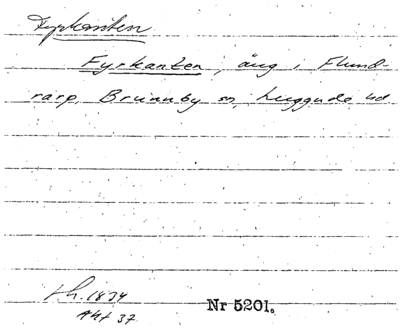 Fyrkanten
Fyrkanten, äng i Flund-
rarp, Brunnby sn, Luggude hd
1834
Akt 37
Nr 5201.